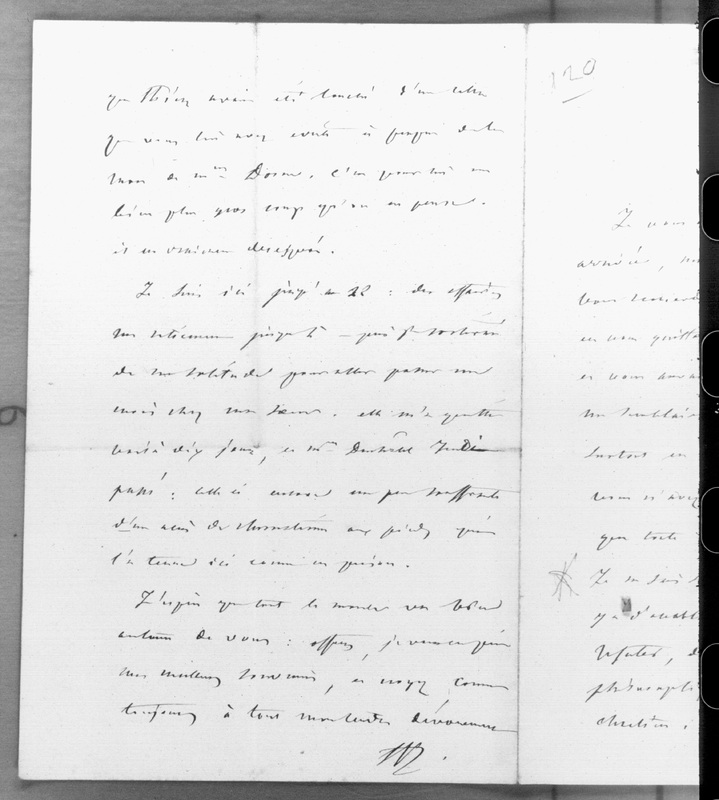 que Thiers avait été touché d'une lettre
que vous lui avez écrite à propos de la
mort de Mme Dosne. C'est pour lui un
bien plus gros coup qu'on ne pense.
il en est vraiment désespéré.
Je suis ici jusqu'au 22 : des affaires
me retiennent jusque là – puis je sortirai
de ma solitude pour aller passer un
mois chez ma sœur. elle m'a quitté
voilà dix jours, et Mme
passé : elle est encore un peu souffrante
d'un accès de rhumatisme aux pieds qui
l'a tenue ici comme en prison.
J'espère que tout le monde va bien
autour de vous : offrez, je vous prie
mes meilleurs souvenirs, et croyez comme
toujours à tout mon tendre dévouement
120
Je vous
vous
en vous quitta
et vous
me semblait
surtout en
vous n'avez
que toute
Je me suis
y a d'
réfuter, d
philosoph
chrétien.